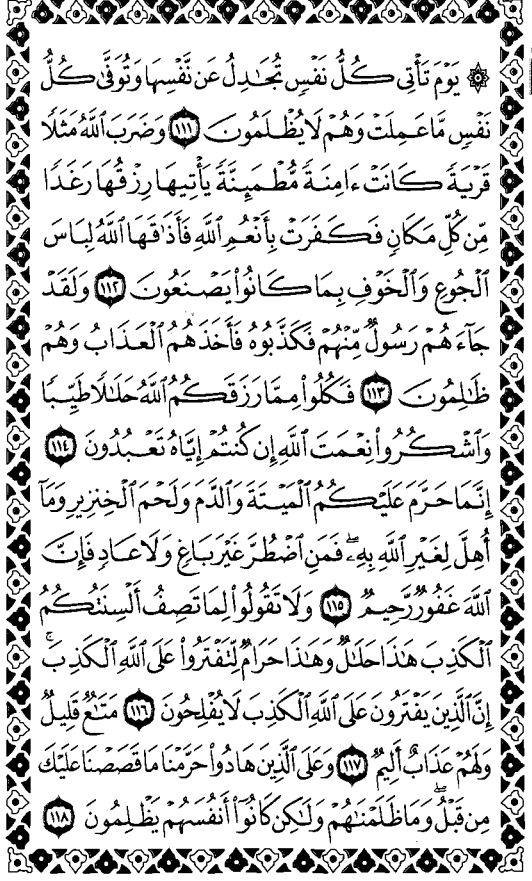 ۞ يَوْمَ تَأْتِى كُلُّ نَفْسٍ تُجَٰدِلُ عَن نَّفْسِهَا وَتُوَفَّىٰ كُلُّ
نَفْسٍ مَّا عَمِلَتْ وَهُمْ لَا يُظْلَمُونَ ١١١ وَضَرَبَ ٱللَّهُ مَثَلًا
قَرْيَةً كَانَتْ ءَامِنَةً مُّطْمَئِنَّةً يَأْتِيهَا رِزْقُهَا رَغَدًا
مِّن كُلِّ مَكَانٍ فَكَفَرَتْ بِأَنْعُمِ ٱللَّهِ فَأَذَٰقَهَا ٱللَّهُ لِبَاسَ
ٱلْجُوعِ وَٱلْخَوْفِ بِمَا كَانُوا۟ يَصْنَعُونَ ١١٢ وَلَقَدْ
جَآءَهُمْ رَسُولٌ مِّنْهُمْ فَكَذَّبُوهُ فَأَخَذَهُمُ ٱلْعَذَابُ وَهُمْ
ظَٰلِمُونَ ١١٣ فَكُلُوا۟ مِمَّا رَزَقَكُمُ ٱللَّهُ حَلَٰلًا طَيِّبًا
وَٱشْكُرُوا۟ نِعْمَتَ ٱللَّهِ إِن كُنتُمْ إِيَّاهُ تَعْبُدُونَ ١١٤
إِنَّمَا حَرَّمَ عَلَيْكُمُ ٱلْمَيْتَةَ وَٱلدَّمَ وَلَحْمَ ٱلْخِنزِيرِ وَمَآ
أُهِلَّ لِغَيْرِ ٱللَّهِ بِهِۦ ۖ فَمَنِ ٱضْطُرَّ غَيْرَ بَاغٍ وَلَا عَادٍ فَإِنَّ
ٱللَّهَ غَفُورٌ رَّحِيمٌ ١١٥ وَلَا تَقُولُوا۟ لِمَا تَصِفُ أَلْسِنَتُكُمُ
ٱلْكَذِبَ هَٰذَا حَلَٰلٌ وَهَٰذَا حَرَامٌ لِّتَفْتَرُوا۟ عَلَى ٱللَّهِ ٱلْكَذِبَ ۚ
إِنَّ ٱلَّذِينَ يَفْتَرُونَ عَلَى ٱللَّهِ ٱلْكَذِبَ لَا يُفْلِحُونَ ١١٦ مَتَٰعٌ قَلِيلٌ
وَلَهُمْ عَذَابٌ أَلِيمٌ ١١٧ وَعَلَى ٱلَّذِينَ هَادُوا۟ حَرَّمْنَا مَا قَصَصْنَا عَلَيْكَ
مِن قَبْلُ ۖ وَمَا ظَلَمْنَٰهُمْ وَلَٰكِن كَانُوٓا۟ أَنفُسَهُمْ يَظْلِمُونَ ١١٨